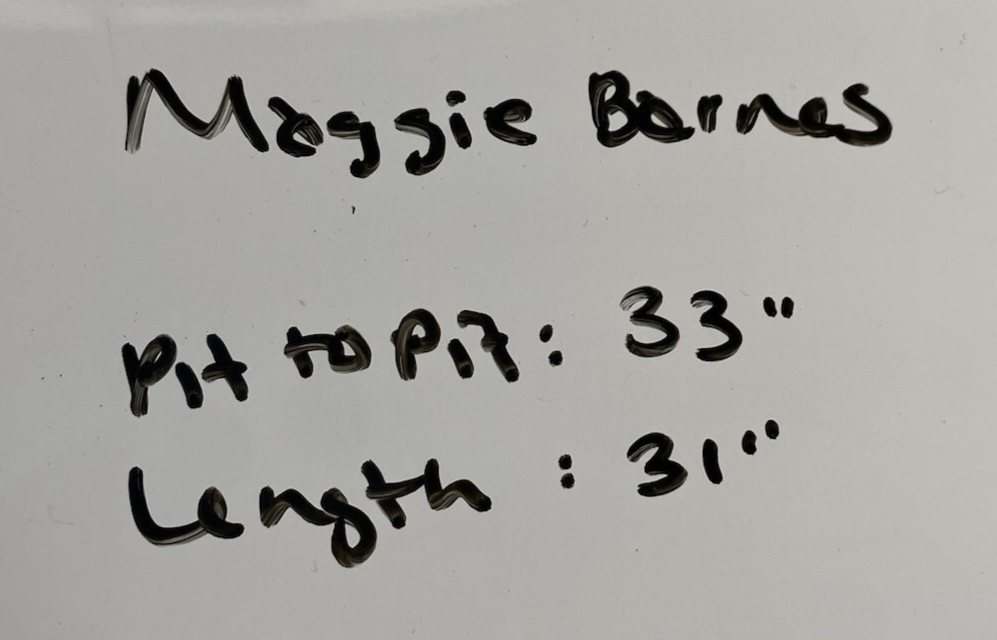 Maggie Barnes
Pit to Pit: 33"
Length: 31"